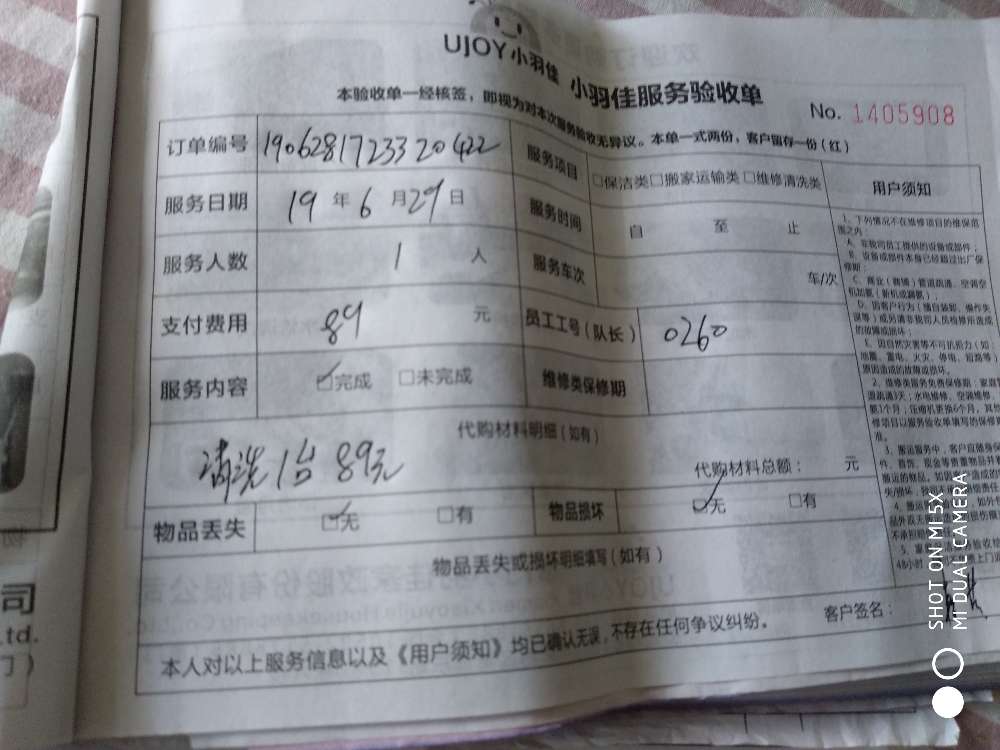 UJOY小羽佳 小羽佳服务验收单
No. 1405908
本验收单一经核签，即视为对本次服务验收无异议。本单一式两份，客户留存一份（红）
订单编号 190628172332 0422
服务项目 □保洁类□搬家运输类□维修清洗类
用户须知
服务日期 19 年 6 月 29 日
服务时间 自 至 止
服务人数 1 人
服务车次 车/次
支付费用 89 元
员工工号（队长） 0260
服务内容 ☑完成 □未完成
维修类保修期
代购材料明细（如有）
清洗1台 89元
代购材料总额： 元
物品丢失 ☑无 □有
物品损坏 ☑无 □有
物品丢失或损坏明细填写（如有）
客户签名：
本人对以上服务信息以及《用户须知》均已确认无误，不存在任何争议纠纷。
1、下列情况不在维修项目的维保范
围之内：
A、非我司员工提供的设备或部件；
B、设备或部件本身已经超过出厂保
修期；
C、商业（商铺）管道疏通、空调空
机加氨（新机或漏氨）；
D、因客户行为（擅自装卸、操作失
误等）或另请非我司人员检修所造成
的故障或损坏；
E、因自然灾害等不可抗拒力（如：
地震、雷电、火灾、停电、短路等）
原因造成的故障或损坏；
2、维修类服务免费保修期：家庭管
道疏通3天；水电维修、空调维修、
氨1个月；压缩机更换6个月，其他
修项目以服务验收单填写的保修期
准。
3、搬运服务中，客户应随身保
件、首饰、现金等贵重物品并
搬运的物品。
48小时
司
td.
门）
SHOT ON MI 5X
MI DUAL CAMERA